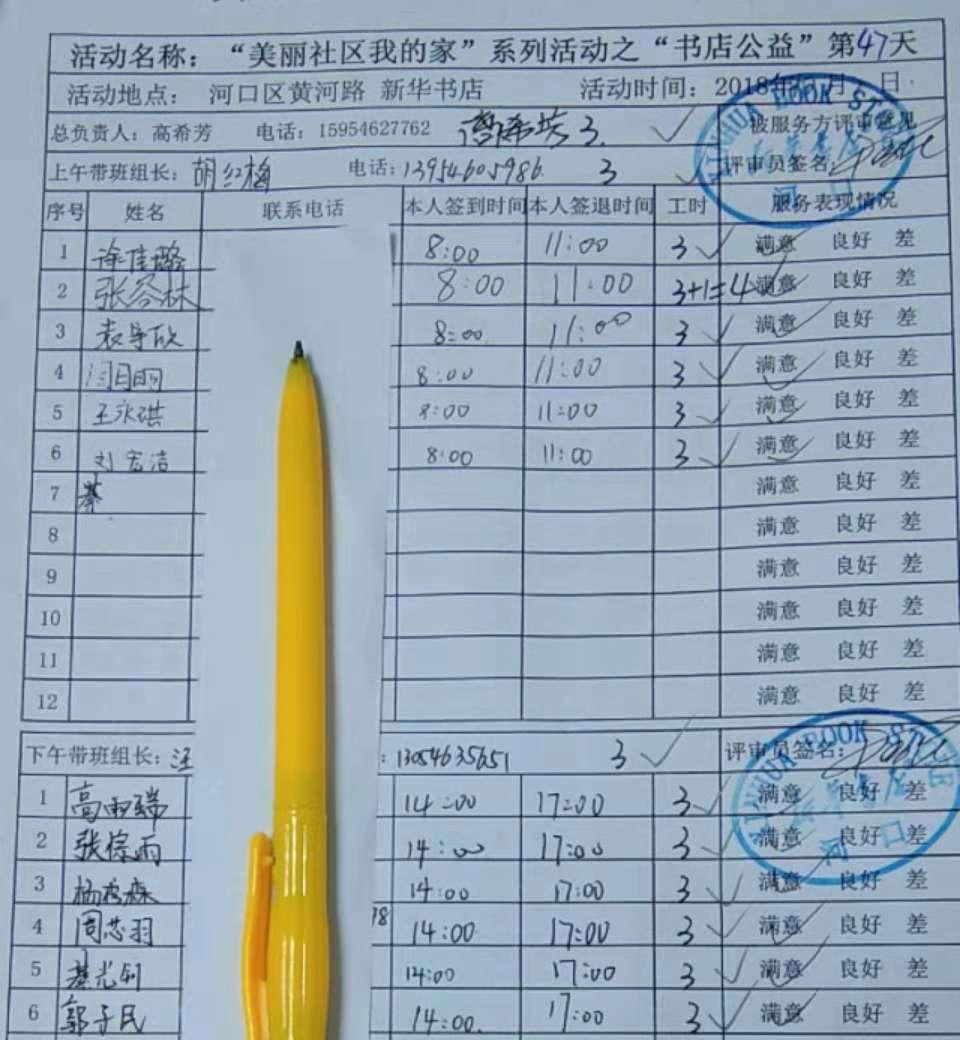 活动名称：“美丽社区我的家”系列活动之“书店公益”第47天
活动地点： 河口区黄河路 新华书店 活动时间：2018年 月 日
总负责人：高希芳 电话：15954627762 3 被服务方评审意见
上午带班组长：胡红梅 电话：13954605986 3 评审员签名：
序号 姓名 联系电话 本人签到时间 本人签退时间 工时 服务表现情况
1 徐佳璐 8:00 11:00 3 满意 良好 差
2 张容林 8:00 11:00 3+1=4 满意 良好 差
3 袁宇欣 8:00 11:00 3 满意 良好 差
4 8:00 11:00 3 满意 良好 差
5 王永琪 8:00 11:00 3 满意 良好 差
6 刘宏洁 8:00 11:00 3 满意 良好 差
7 满意 良好 差
8 满意 良好 差
9 满意 良好 差
10 满意 良好 差
11 满意 良好 差
12 满意 良好 差
下午带班组长：汪 ：13054635651 3 评审员签名：
1 高雨瑞 14:00 17:00 3 满意 良好 差
2 张倧雨 14:00 17:00 3 满意 良好 差
3 14:00 17:00 3 满意 良好 差
4 周芯羽 14:00 17:00 3 满意 良好 差
5 14:00 17:00 3 满意 良好 差
6 郭子民 14:00 17:00 3 满意 良好 差
XINHUA BOOK STORE
河口
XINHUA BOOK STORE
河口